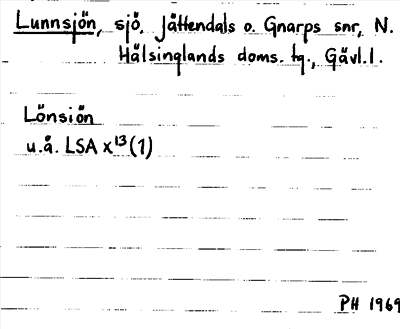 Lunnsjön, sjö, Jättendals o. Gnarps snr, N.
Hälsinglands doms. tg., Gävl.l.
Lönsiön
u.å. LSA x¹³(1)
PH 1969